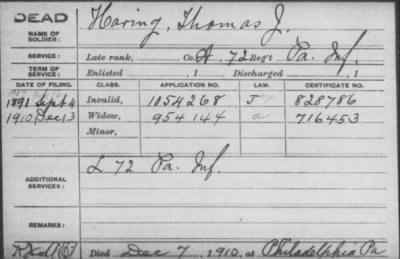 DEAD
NAME OF SOLDIER: Haring, Thomas J.
SERVICE: Late rank, Co. A, 72 Reg't Pa. Inf.
TERM OF SERVICE: Enlisted , 1 Discharged , 1
DATE OF FILING. CLASS. APPLICATION NO. LAW. CERTIFICATE NO.
1891 Sept 4 Invalid, 1054268 J 828786
1910, Dec 13 Widow, 954144 a 716453
Minor,
ADDITIONAL SERVICES: L 72 Pa. Inf.
REMARKS:
Died Dec 7, 1910, at Philadelphia Pa